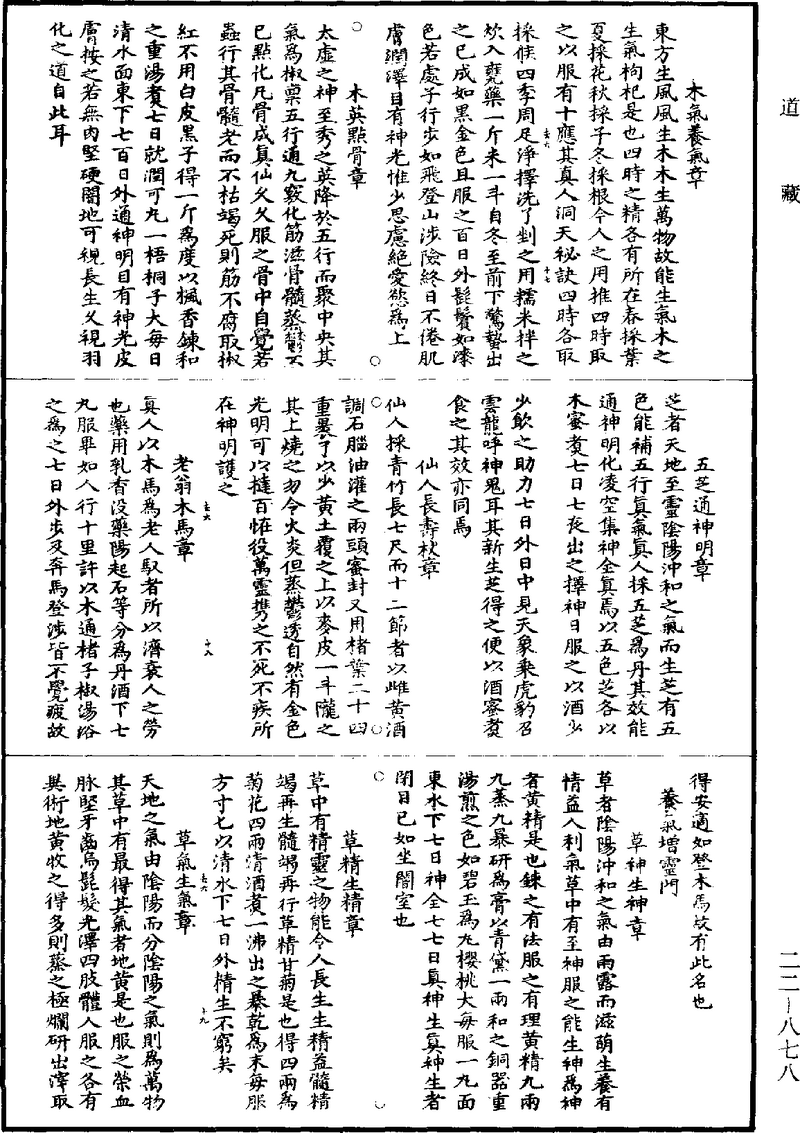 道藏
木氣養氣章
東方生風風生木木生萬物故能生氣木之
生氣枸杞是也四時之精各有所在春採葉
夏採花秋採子冬採根令人之用推四時取
之以服有十應其真人洞天秘訣四時各取
採候四季周足淨擇洗了剉之用糯米拌之
炊入甕藥一斤米一斗自冬至前下驚蟄出
之已成如黑金色且服之百日外髭鬢如漆
色若處子行步如飛登山涉險終日不倦肌
膚潤澤目有神光惟少思慮絕愛慾為上
木英點骨章
太虛之神至秀之英降於五行而聚中央其
氣為椒稟五行通九竅化筋滋骨髓蒸
已點化凡骨成真仙久久服之骨中自覺若
蟲行其骨髓老而不枯竭死則筋不腐取椒
紅不用白皮黑子得一斤為度以楓香鍊和
之重湯煮七日就潤可丸一梧桐子大每日
清水面東下七百日外通神明目有神光皮
膚按之若無肉堅硬闇地可視長生久視羽
化之道自此耳
五芝通神明章
芝者天地至靈陰陽沖和之氣而生芝有五
色能補五行真氣真人採五芝為丹其效能
通神明化凌空集神全真焉以五色芝各以
木蜜煮七日七夜出之擇神日服之以酒少
少飲之助力七日外日中見天象乘虎豹召
雲龍呼神鬼耳其新生芝得之便以酒蜜煮
食之其效亦同焉
仙人長壽杖章
仙人採青竹長七尺而十二節者以雌黃酒
調石腦油灌之兩頭蜜封又用楮葉二十四
重裹了以少黃土覆之上以麥皮一斗隴之
其上燒之勿令火炎但蒸鬱透自然有金色
光明可以撻百怪役萬靈攜之不死不疾所
在神明護之
老翁木馬章
真人以木馬為老人馭者所以濟衰人之勞
也藥用乳香沒藥陽起石等分為丹酒下七
丸服畢如人行十里許以木通楮子椒湯浴
之為之七日外步及奔馬登涉皆不覺疲故
得安適如登木馬故有此名也
養氣增靈門
草神生神章
草者陰陽沖和之氣由雨露而滋萌生養有
情益人利氣草中有至神服之能生神為神
者黃精是也鍊之有法服之有理黃精九兩
九蒸九暴研為膏以青黛一兩和之銅器重
湯煎之色如碧玉為丸櫻桃大每服一丸面
東水下七日神全七七日真神生真神生者
閉目已如坐闇室也
草精生精章
草中有精靈之物能令人長生生精益髓精
竭再生髓竭再行草精甘菊是也得四兩為
菊花四兩清酒煮一沸出之暴乾為末每服
方寸匕以清水下七日外精生不窮矣
草氣生氣章
天地之氣由陰陽而分陰陽之氣則為萬物
其草中有最得其氣者地黃是也服之榮血
脉堅牙齒烏髭髮光澤四肢體人服之各有
異術地黃收之得多則蒸之極爛研出滓取
二二－八七八